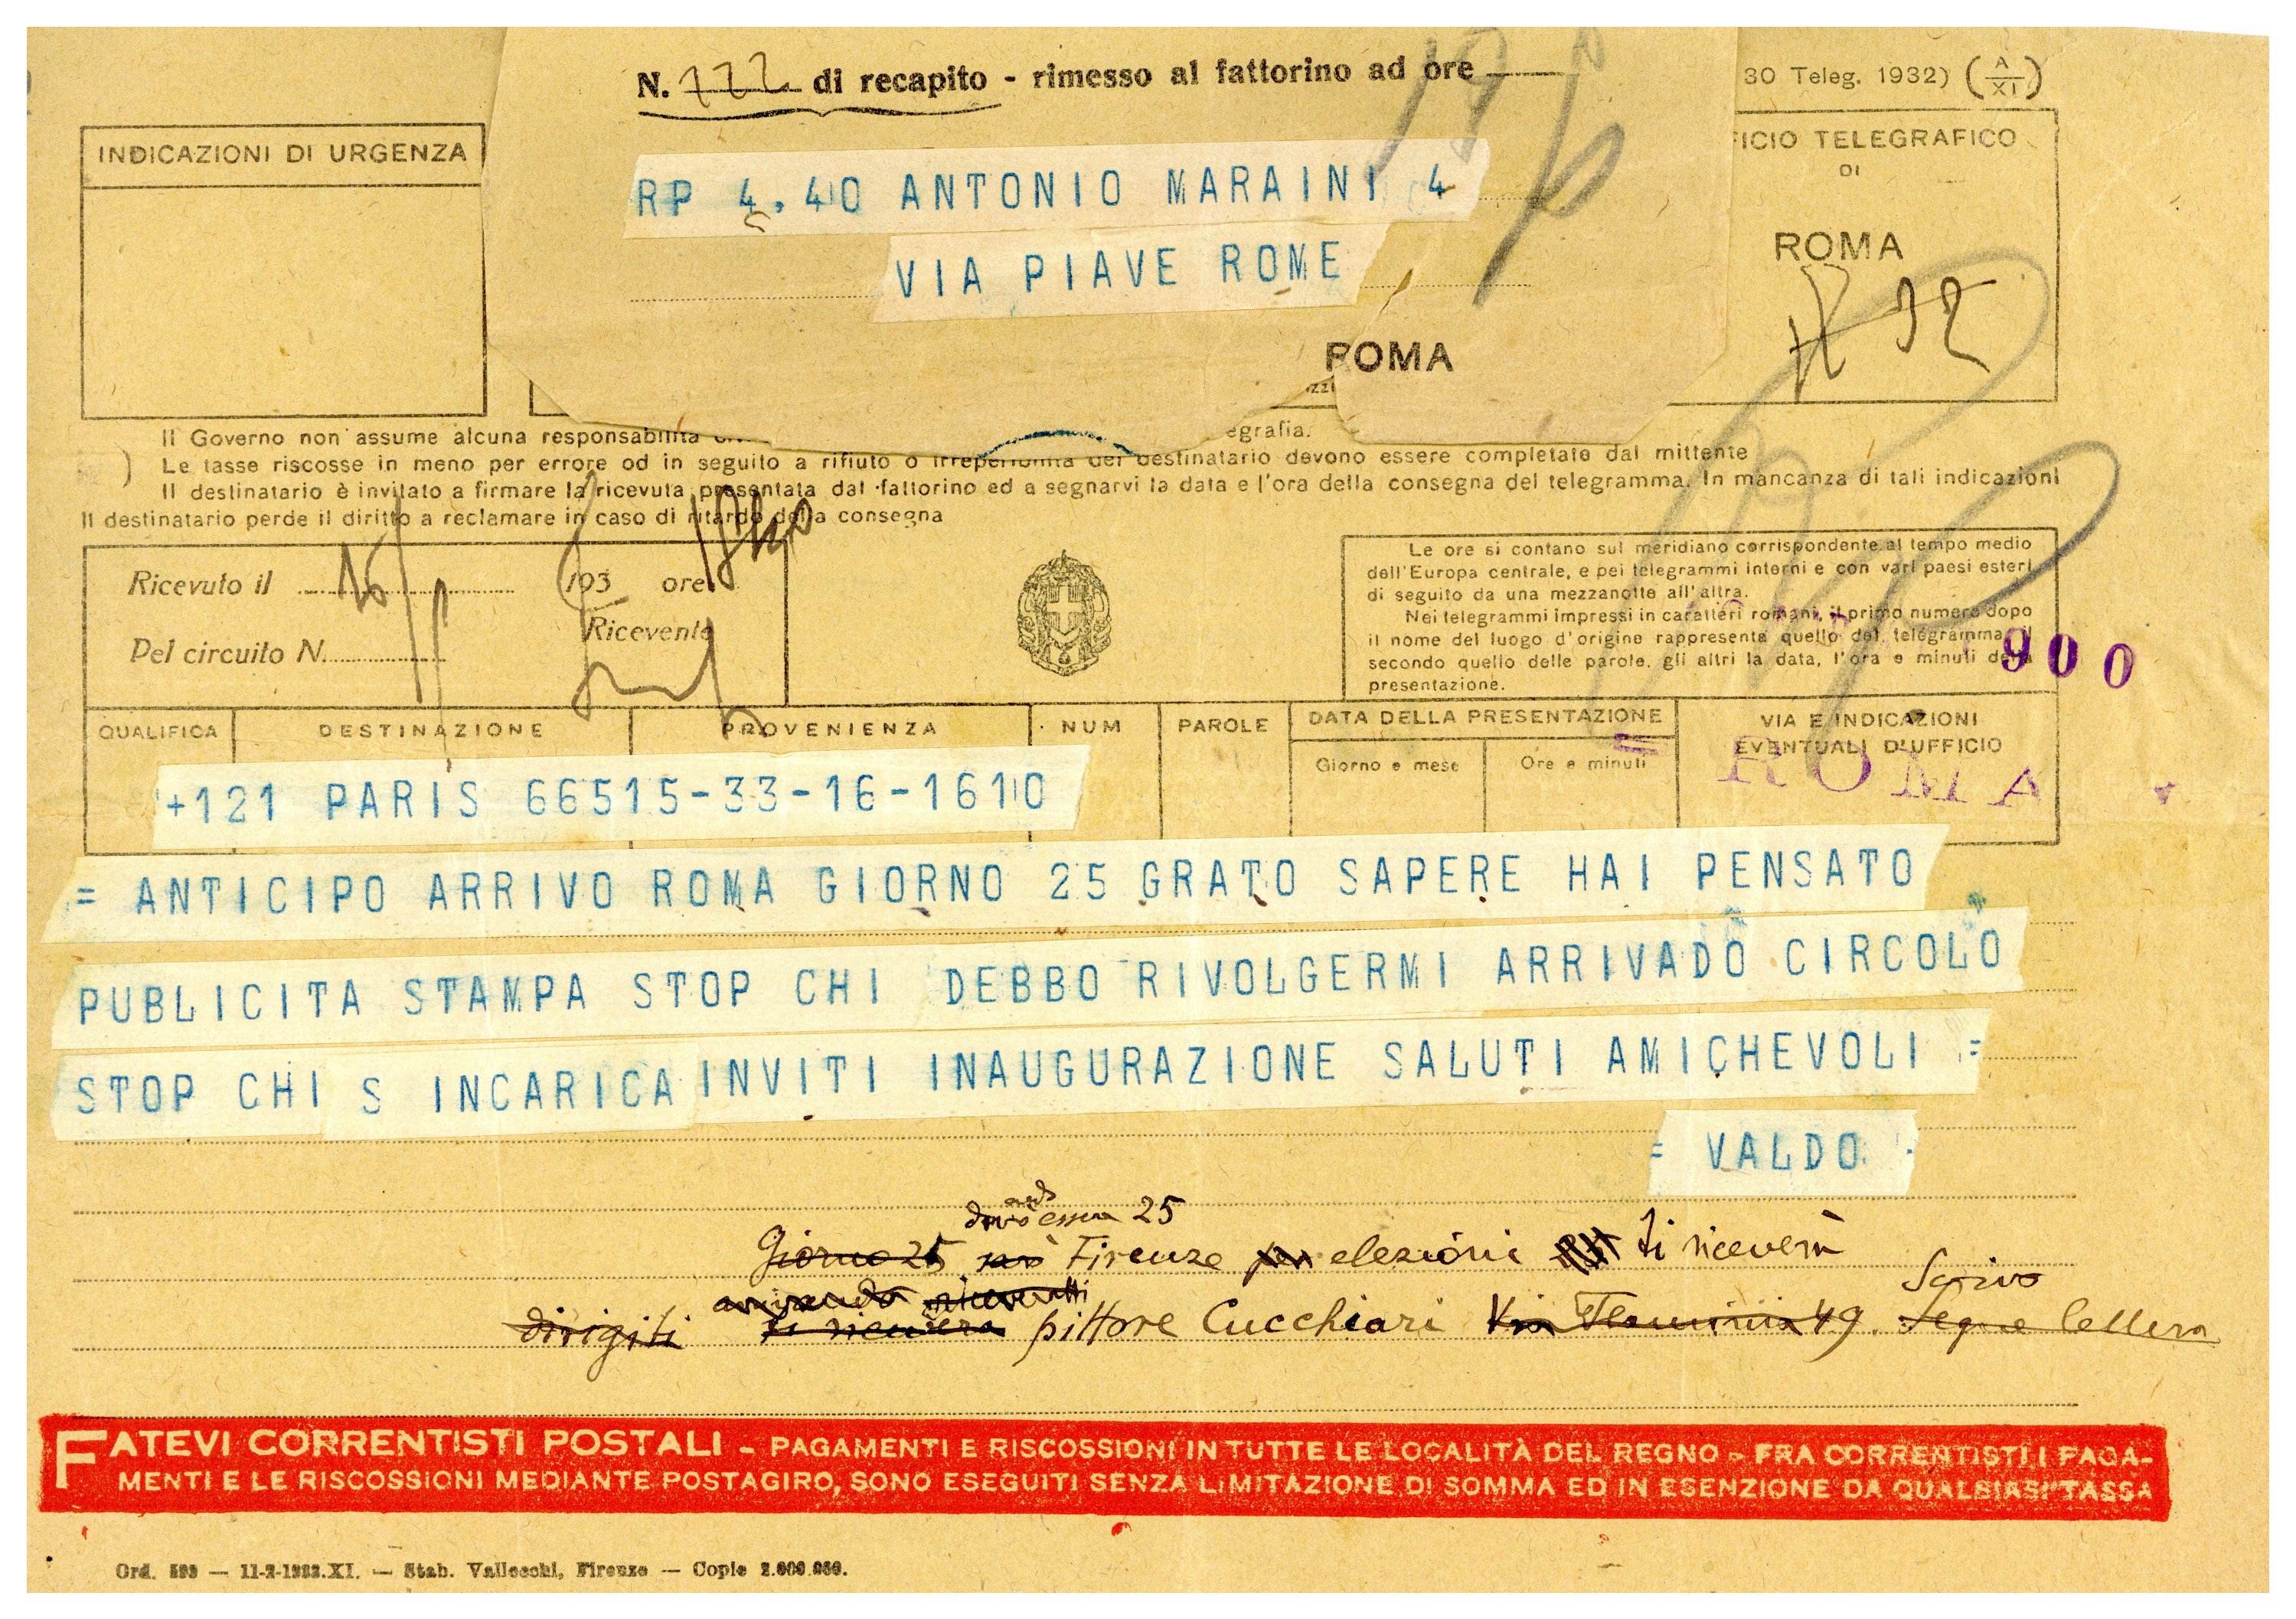 N. 722 di recapito - rimesso al fattorino ad ore
30 Teleg. 1932) (A/XI)
INDICAZIONI DI URGENZA
FICIO TELEGRAFICO
DI
ROMA
RP 4.40 ANTONIO MARAINI 4
VIA PIAVE ROME
ROMA
Il Governo non assume alcuna responsabilità egrafia.
Le tasse riscosse in meno per errore od in seguito a rifiuto o irreperibilità del destinatario devono essere completate dal mittente
Il destinatario è invitato a firmare la ricevuta presentata dal fattorino ed a segnarvi la data e l'ora della consegna del telegramma. In mancanza di tali indicazioni
Il destinatario perde il diritto a reclamare in caso di ritardo della consegna
Ricevuto il 16 193 ore
Del circuito N.
Ricevente
Le ore si contano sul meridiano corrispondente al tempo medio
dell'Europa centrale, e pei telegrammi interni e con vari paesi esteri
di seguito da una mezzanotte all'altra.
Nei telegrammi impressi in caratteri romani, il primo numero dopo
il nome del luogo d'origine rappresenta quello del telegramma, il
secondo quello delle parole, gli altri la data, l'ora e minuti della
presentazione.
900
QUALIFICA
DESTINAZIONE
PROVENIENZA
NUM
PAROLE
DATA DELLA PRESENTAZIONE
Giorno e mese
Ore e minuti
VIA E INDICAZIONI
EVENTUALI D'UFFICIO
ROMA
+121 PARIS 66515-33-16-1610
= ANTICIPO ARRIVO ROMA GIORNO 25 GRATO SAPERE HAI PENSATO
PUBLICITA STAMPA STOP CHI DEBBO RIVOLGERMI ARRIVADO CIRCOLO
STOP CHI S INCARICA INVITI INAUGURAZIONE SALUTI AMICHEVOLI =
= VALDO
essere 25
Giorno 25 Firenze per elezioni ti riceverà
arrivando
Scrivo
dirigiti ti riceverà pittore Cucchiari Via Flaminia 49. Segue lettera
FATEVI CORRENTISTI POSTALI - PAGAMENTI E RISCOSSIONI IN TUTTE LE LOCALITÀ DEL REGNO - FRA CORRENTISTI I PAGA-
MENTI E LE RISCOSSIONI MEDIANTE POSTAGIRO, SONO ESEGUITI SENZA LIMITAZIONE DI SOMMA ED IN ESENZIONE DA QUALSIASI TASSA
Ord. — XI. — Stab. Vallecchi, Firenze — Copie